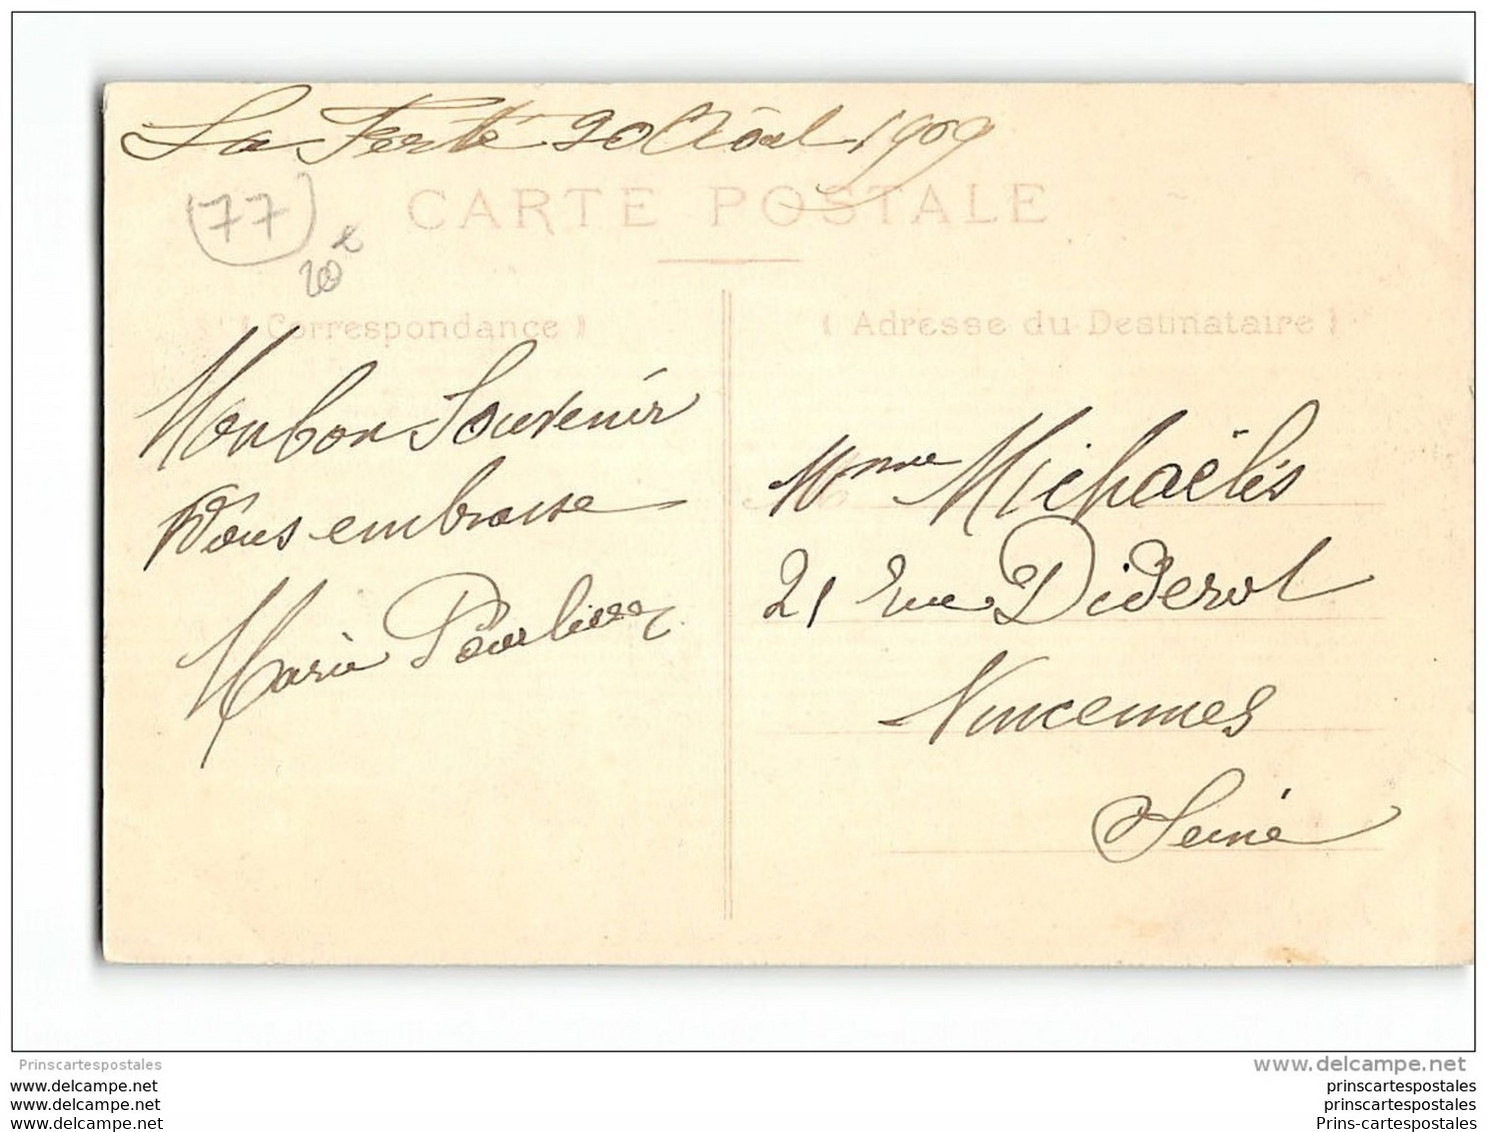 La Ferté 20 Août 1909
CARTE POSTALE
(77)
20€
(Correspondance)
(Adresse du Destinataire)
Mon bon Souvenir
Vous embrasse
Marie
Mme Michaëlis
21 rue Diderot
Vincennes
Seine
Prinscartespostales
www.delcampe.net
www.delcampe.net
www.delcampe.net
www.delcampe.net
prinscartespostales
prinscartespostales
Prins-cartespostales